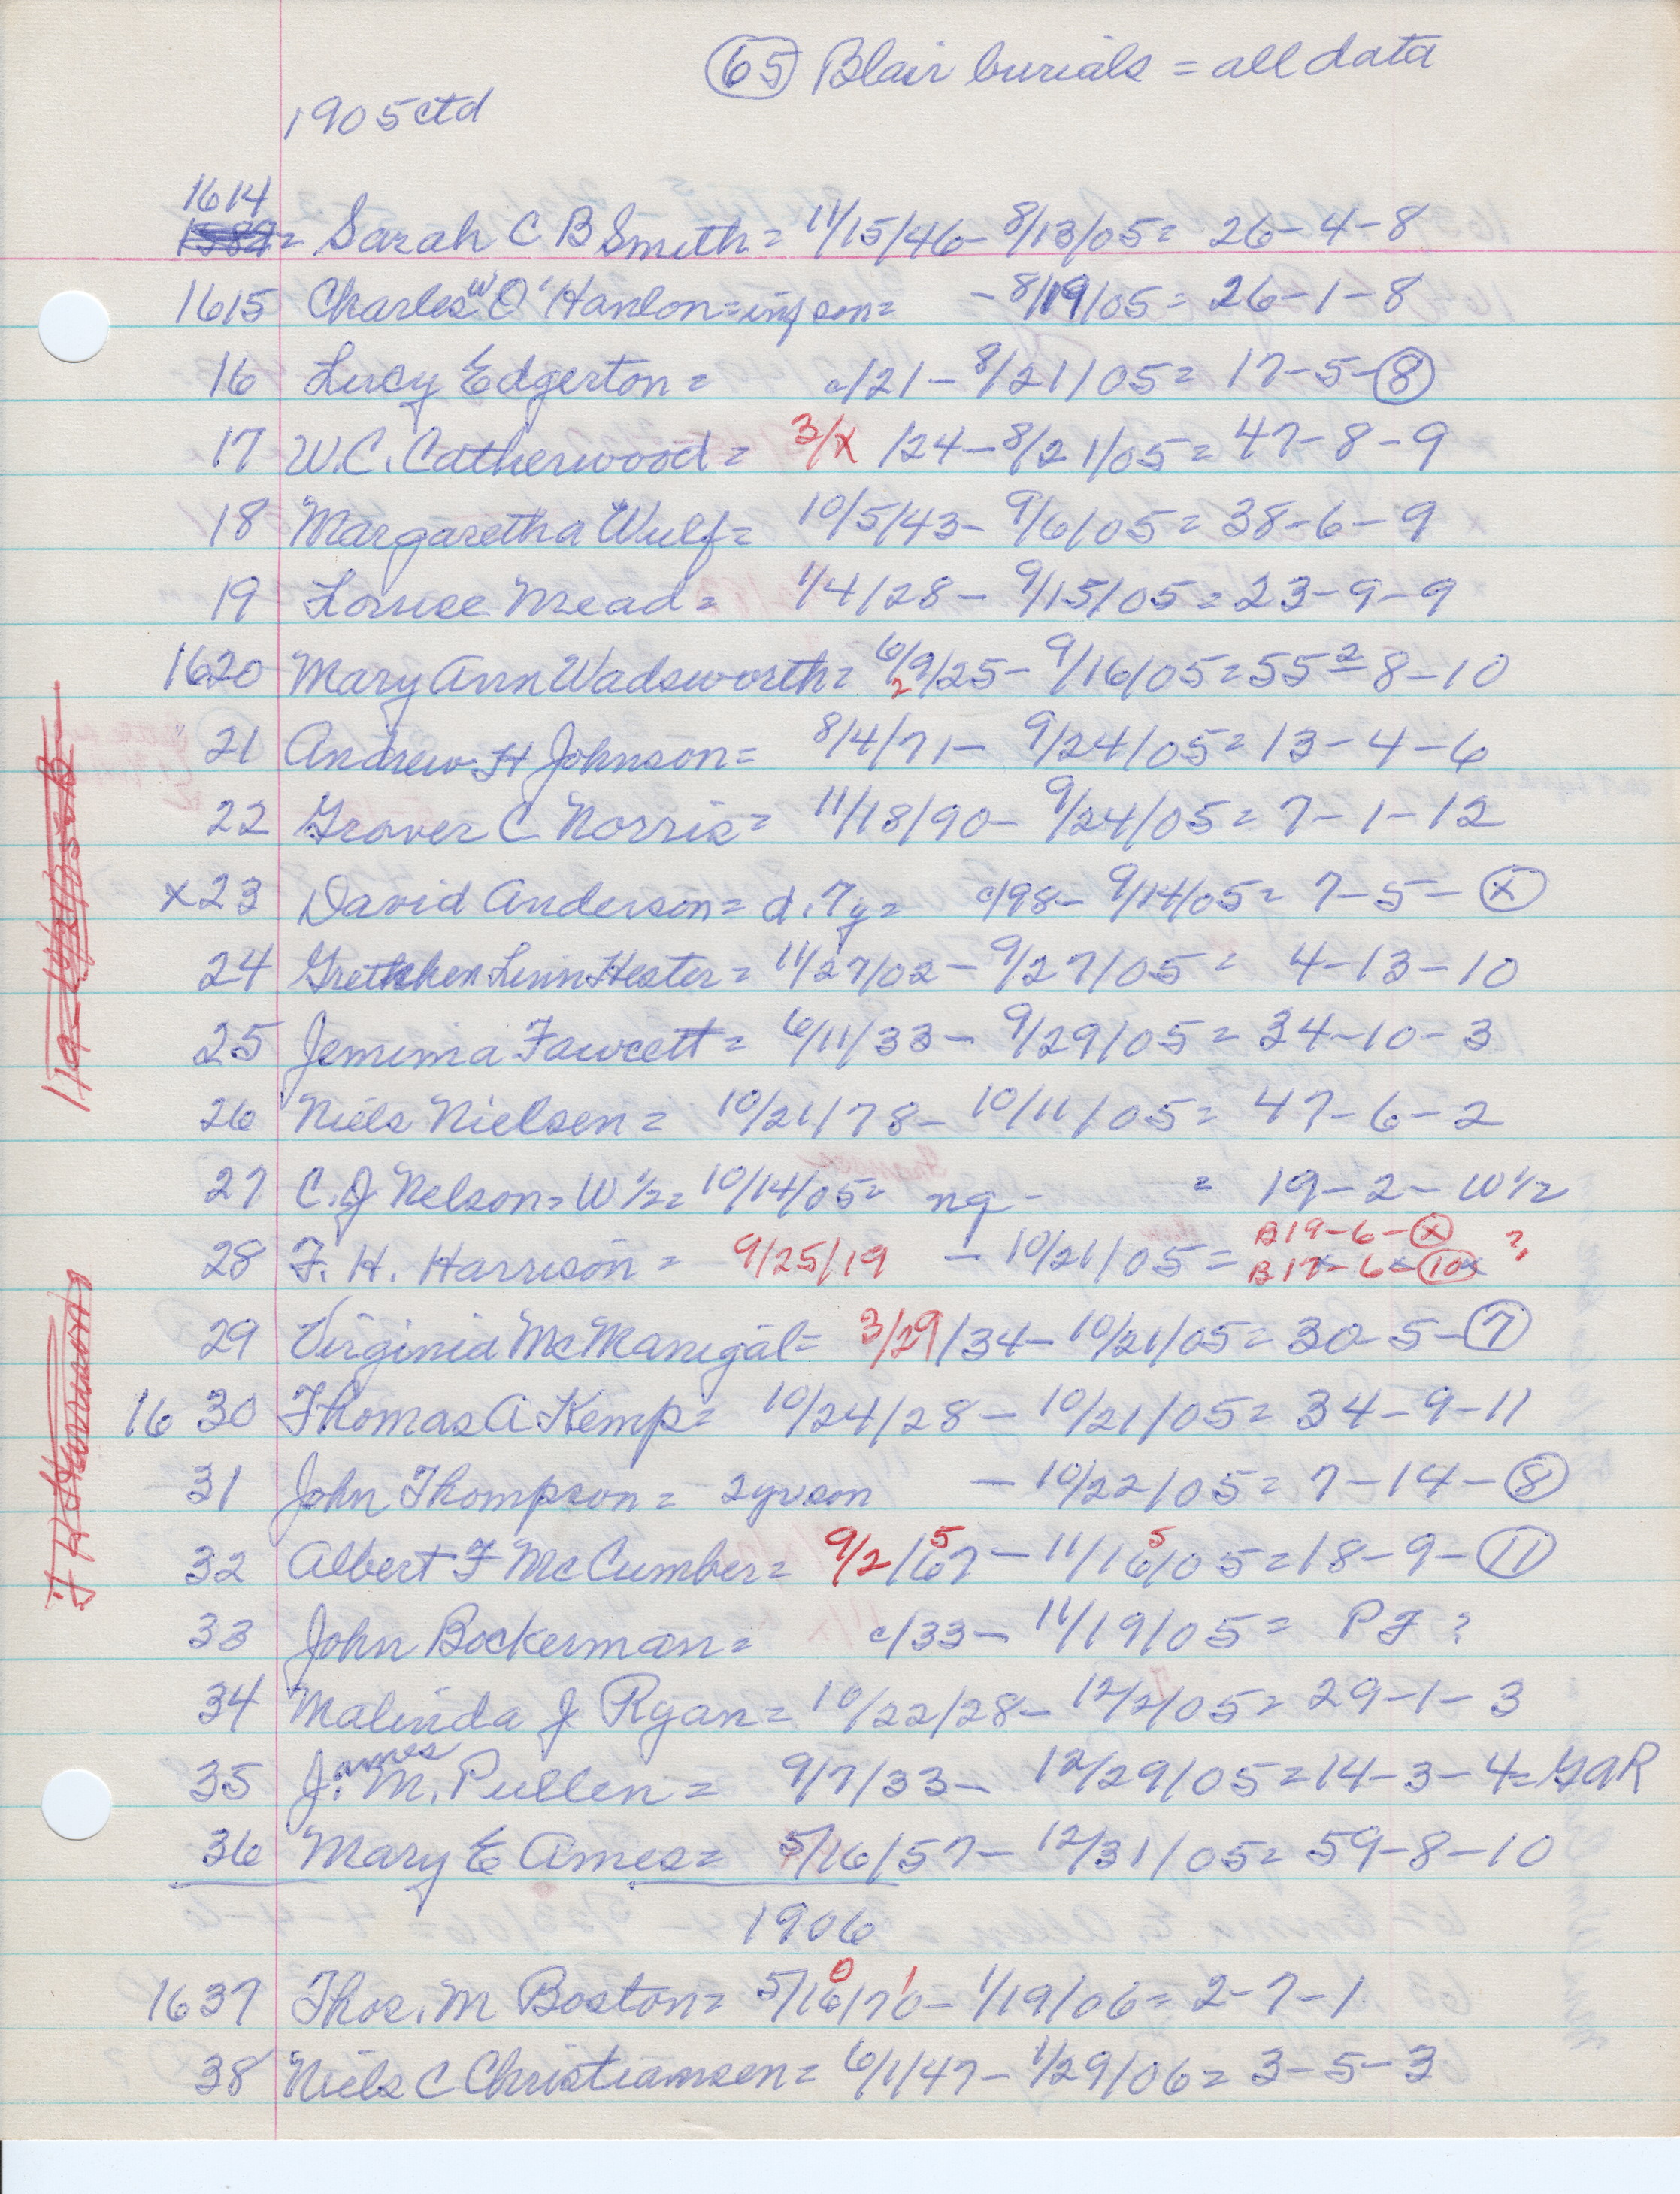 (65) Blair burials = all data
1905 ctd
1614
1587 = Sarah C B Smith = 11/15/46 - 8/13/05 = 26-4-8
1615 Charles W O'Hanlon = inf son = - 8/19/05 = 26-1-8
16 Lucy Edgerton = c/21 - 8/21/05 = 17-5-(8)
17 W.C. Catherwood = 3/x /24 - 8/21/05 = 47-8-9
18 Margaretha Wulf = 10/5/43 - 9/6/05 = 38-6-9
19 Mead = 1/4/28 - 9/15/05 = 23-9-9
1620 Mary Ann Wadsworth = 6/9/25 - 9/16/05 = 55-8-10
2 2
21 Andrew H Johnson = 8/4/71 - 9/24/05 = 13-4-6
22 Grover C Norris = 11/18/90 - 9/24/05 = 7-1-12
x 23 David Anderson = d. 7y = c/98 - 9/14/05 = 7-5-(x)
24 Hester = 11/27/02 - 9/27/05 = 4-13-10
25 Jemima Fawcett = 6/11/33 - 9/29/05 = 34-10-3
26 Niels Nielsen = 10/21/78 - 10/11/05 = 47-6-2
27 C. J Nelson = W 1/2 = 10/14/05 = ng - = 19-2-W 1/2
B19-6-(x) ?
28 F. H. Harrison = 9/25/19 - 10/21/05 = B17-6-(10x)
29 Virginia McManigal = 3/29/34 - 10/21/05 = 30-5-(7)
16 30 Thomas A Kemp = 10/24/28 - 10/21/05 = 34-9-11
31 John Thompson = 2yr son - 10/22/05 = 7-14-(8)
5 5
32 Albert F McCumber = 9/2/67 - 11/16/05 = 18-9-(11)
33 John Bockerman = c/33 - 11/19/05 = P F ?
34 Malinda J. Ryan = 10/22/28 - 12/2/05 = 29-1-3
ames
35 J. M. Pullen = 9/7/33 - 12/29/05 = 14-3-4 = GAR
36 Mary E Ames = 5/16/57 - 12/31/05 = 59-8-10
1906
0 1
1637 Thos. M Boston = 5/16/70 - 1/19/06 = 2-7-1
38 Niels C Christiansen = 6/1/47 - 1/29/06 = 3-5-3
F H Harrison